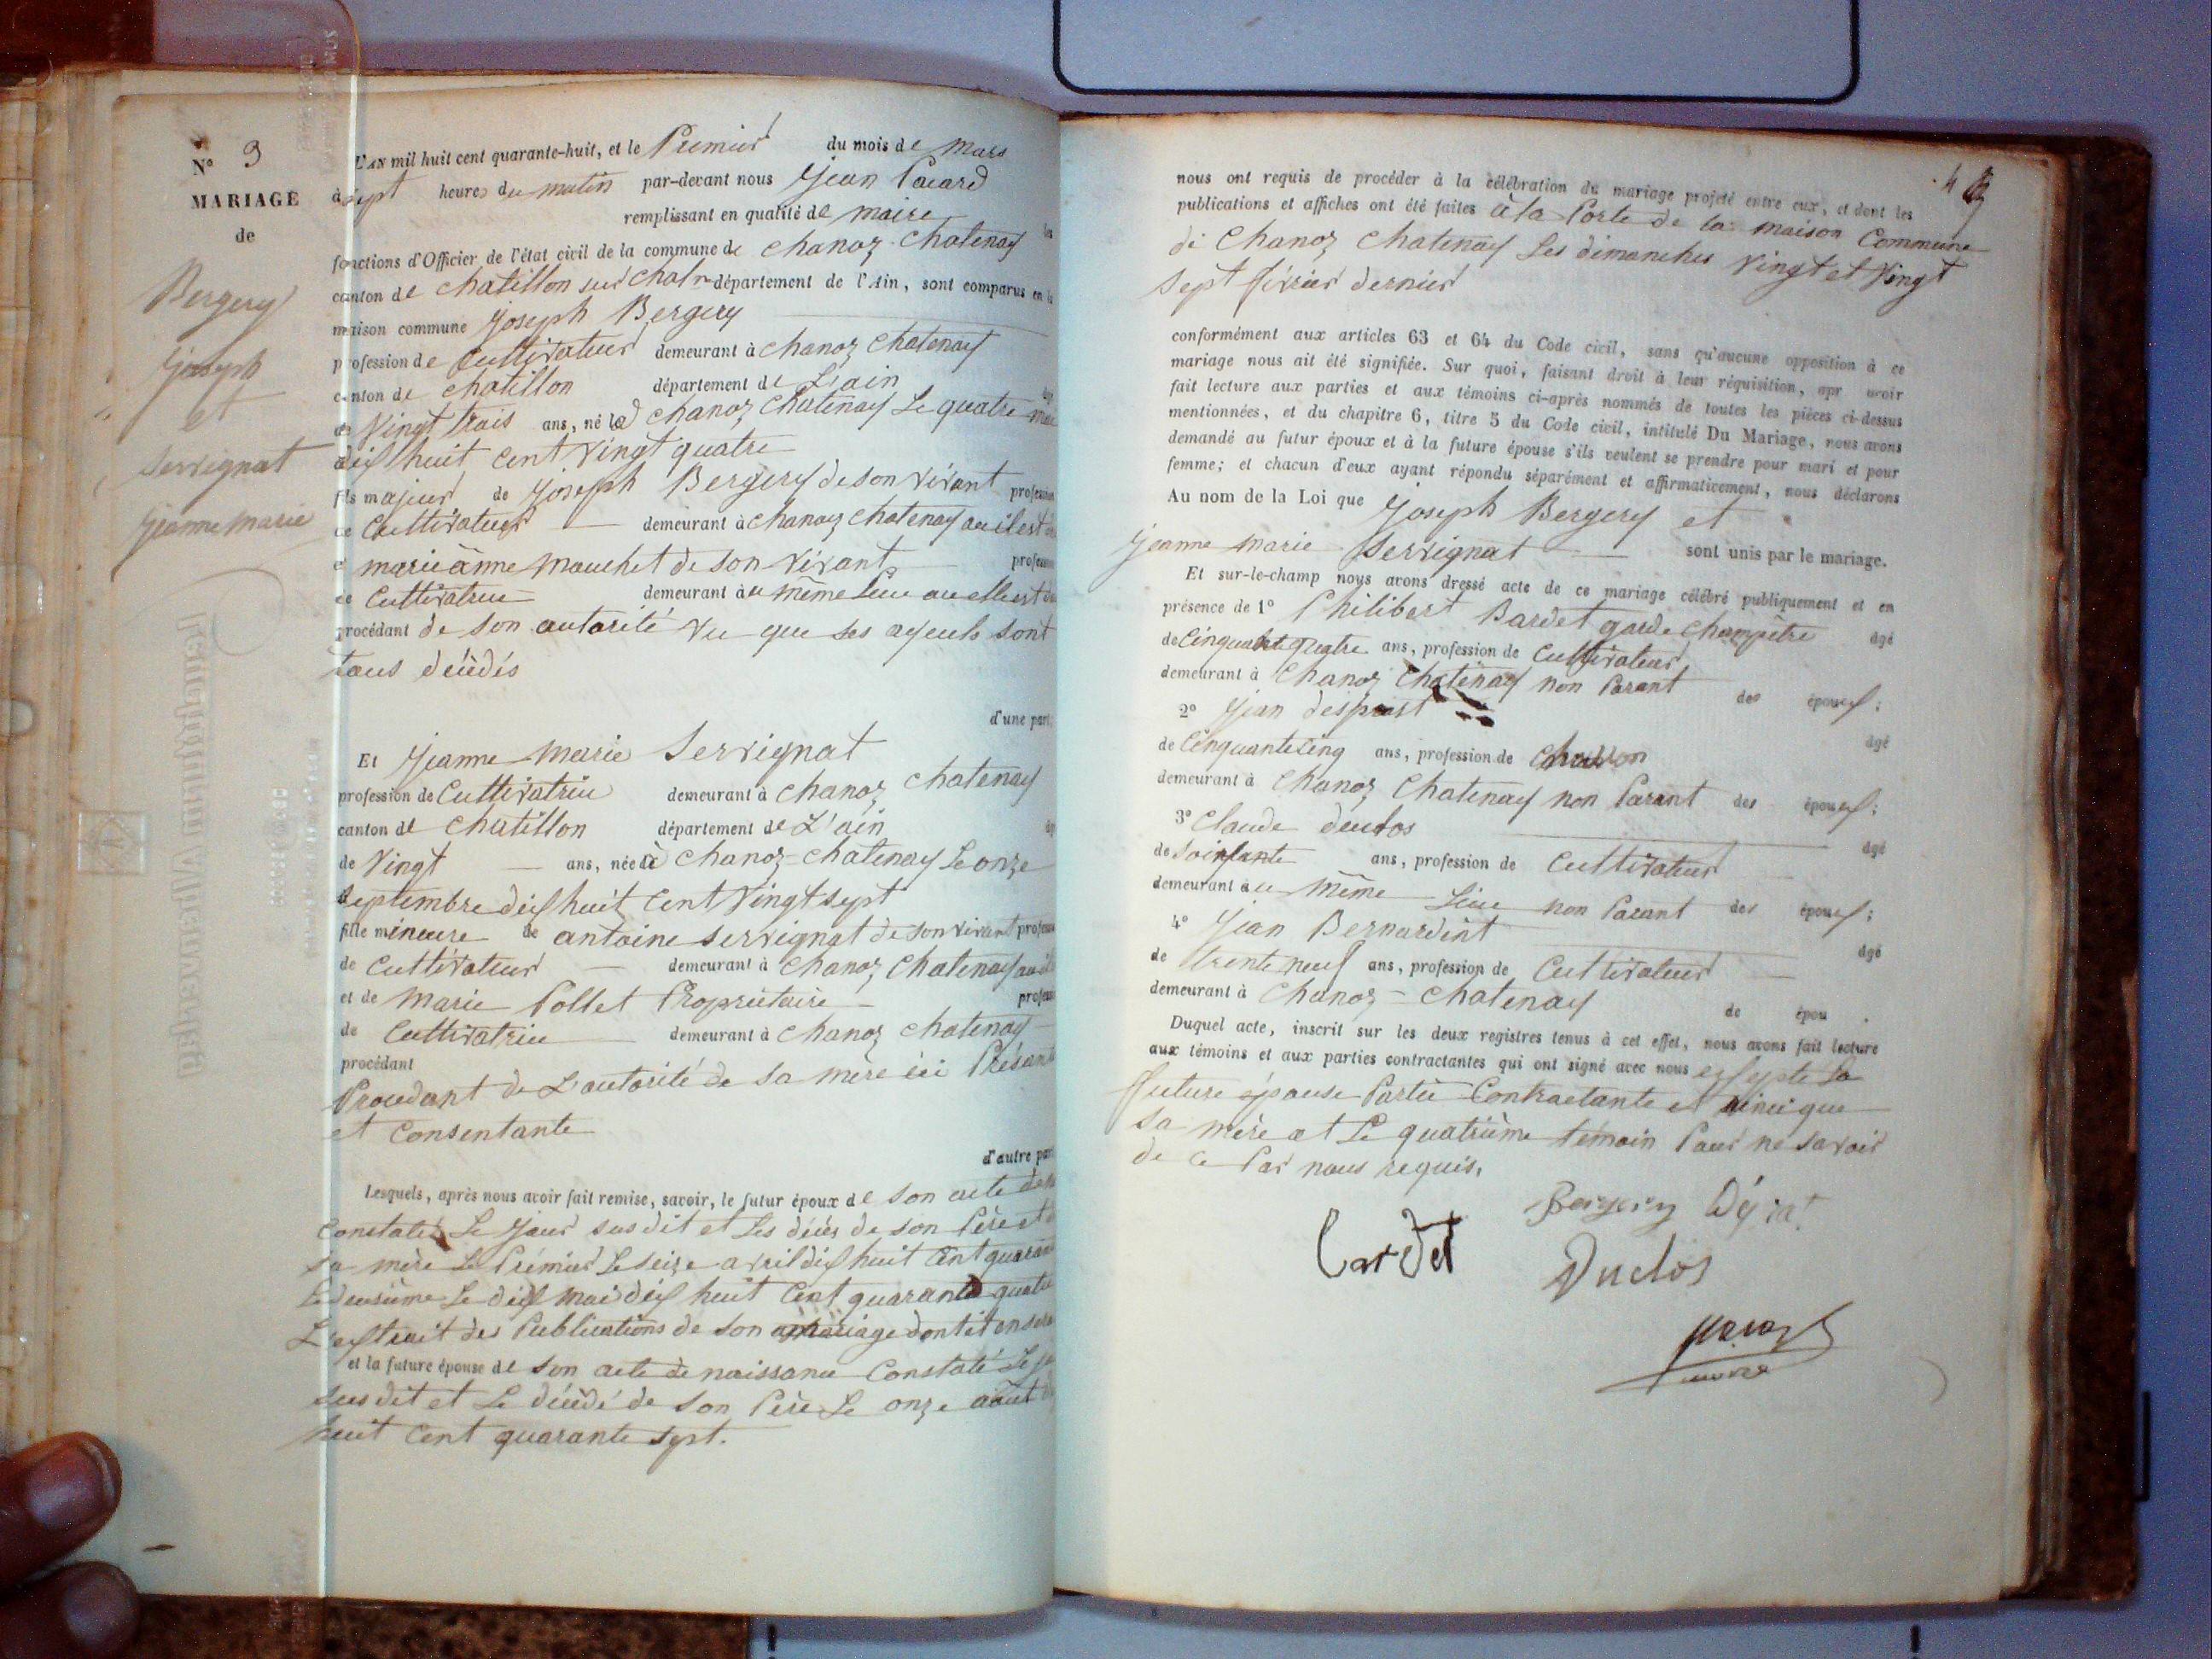 N° 3
MARIAGE
de
Bergery
Joseph
et
Servignat
Jeanne Marie
L'AN mil huit cent quarante-huit, et le Premier du mois de Mars
à sept heures du matin par-devant nous Jean Pacard
remplissant en qualité de maire les
fonctions d'Officier de l'état civil de la commune de Chanoz Chatenay
canton de Chatillon sur Chal département de l'Ain, sont comparus en la
maison commune Joseph Bergery
profession de Cultivateur demeurant à Chanoz Chatenay
canton de Chatillon département de L'ain
de Vingt trois ans, né à Chanoz Chatenay Le quatre
dix huit cent vingt quatre
fils majeur de Joseph Bergery de son vivant profession
de Cultivateur demeurant à Chanoz Chatenay ou il est
et marie anne Mouchet de son vivant profession
de Cultivatrice demeurant au même lieu ou elle est
procédant de son autorité vu que ses ayeuls sont
tous décédés
d'une part;
Et Jeanne Marie Servignat
profession de Cultivatrice demeurant à Chanoz Chatenay
canton de Chatillon département de L'ain
de Vingt ans, née à Chanoz-Chatenay Le onze
Septembre dix huit Cent Vingt sept
fille mineure de antoine Servignat de son vivant profession
de Cultivateur demeurant à Chanoz Chatenay
et de Marie Pollet Propriétaire profession
de Cultivatrice demeurant à Chanoz Chatenay
procédant
Procedant de L'autorité de sa mère ici Présante
et Consentante
d'autre part
Lesquels, après nous avoir fait remise, savoir, le futur époux de son acte de
Constaté Le Jour sus dit et Les décès de son Père et
sa mère Le Prémier Le seize avril dix huit Cent
Le deusième Le dix Mai dix huit Cent quarante quatre
L'extrait des Publications de son mariage dont
et la future épouse de son acte de naissance Constaté Le
sus dit et Le décédé de son Père Le onze août
huit Cent quarante sept.
nous ont requis de procéder à la célébration du mariage projeté entre eux, et dont les
publications et affiches ont été faites à la Porte de la maison Commune
de Chanoz Chatenay Les dimanches Vingt et Vingt
sept février dernier
conformément aux articles 63 et 64 du Code civil, sans qu'aucune opposition à ce
mariage nous ait été signifiée. Sur quoi, faisant droit à leur réquisition, apr avoir
fait lecture aux parties et aux témoins ci-après nommés de toutes les pièces ci-dessus
mentionnées, et du chapitre 6, titre 5 du Code civil, intitulé Du Mariage, nous avons
demandé au futur époux et à la future épouse s'ils veulent se prendre pour mari et pour
femme; et chacun d'eux ayant répondu séparément et affirmativement, nous déclarons
Au nom de la Loi que Joseph Bergery et
Jeanne Marie Servignat sont unis par le mariage.
Et sur-le-champ nous avons dressé acte de ce mariage célébré publiquement et en
présence de 1° Philibert Bardet garde Champêtre âgé
de Cinquante quatre ans, profession de Cultivateur
demeurant à Chanoz Chatenay non Parant des époux;
2° Jean
de Cinquante cinq ans, profession de Charron âgé
demeurant à Chanoz Chatenay non Parant des époux;
3° Claude duclos
de soixante ans, profession de Cultivateur âgé
demeurant au Même Lieu non Parant des époux;
4° Jean Bernardint
de trente neuf ans, profession de Cultivateur âgé
demeurant à Chanoz-Chatenay de épou .
Duquel acte, inscrit sur les deux registres tenus à cet effet, nous avons fait lecture
aux témoins et aux parties contractantes qui ont signé avec nous exsepte la
future épouse Partie Contractante et ainci que
sa mère et Le quatrième témoin Pour ne savoir
de ce Par nous requis.
Bergery
Bardet
Duclos